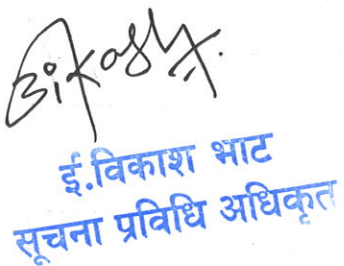 Bikash
ई.विकाश भाट
सूचना प्रविधि अधिकृत